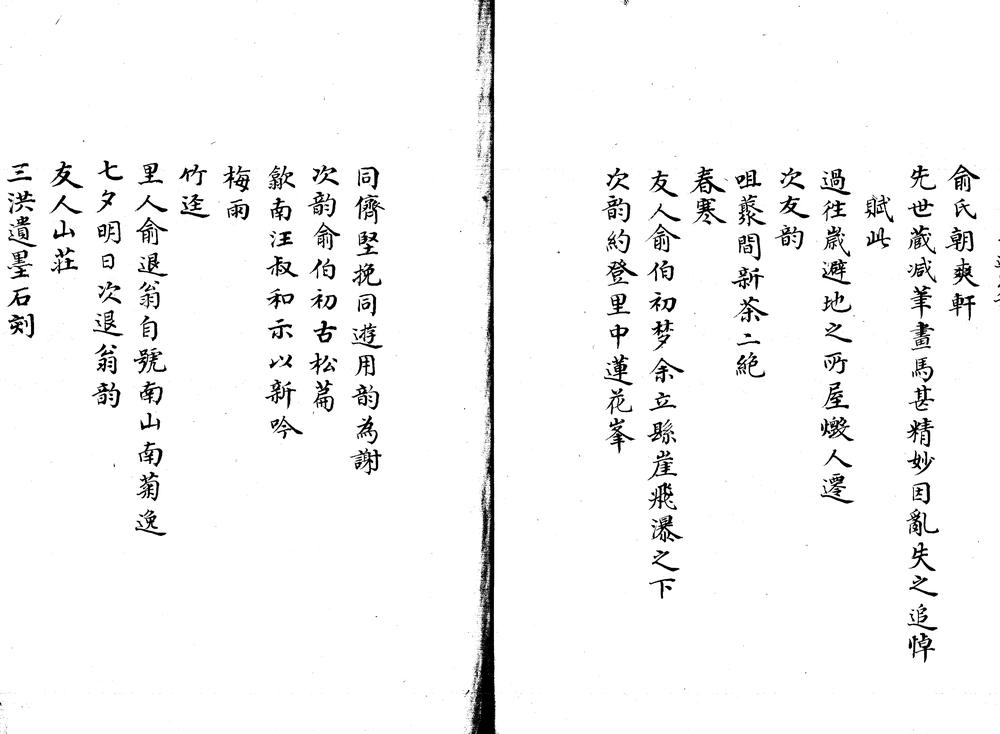 俞氏朝爽軒
先世蔵减筆畫馬甚精妙因亂失之追悼
賦此
過徃嵗避地之所屋燬人遷
次友韵
咀蕞間新茶二絶
春寒
友人俞伯初梦余立縣崖飛瀑之下
次韵約登里中蓮花峯
同儕堅挽同遊用韵為謝
次韵俞伯初古松篇
歙南汪叔和示以新吟
梅雨
竹逕
里人俞退翁自號南山南菊逸
七夕明日次退翁韵
友人山莊
三洪遺墨石刻